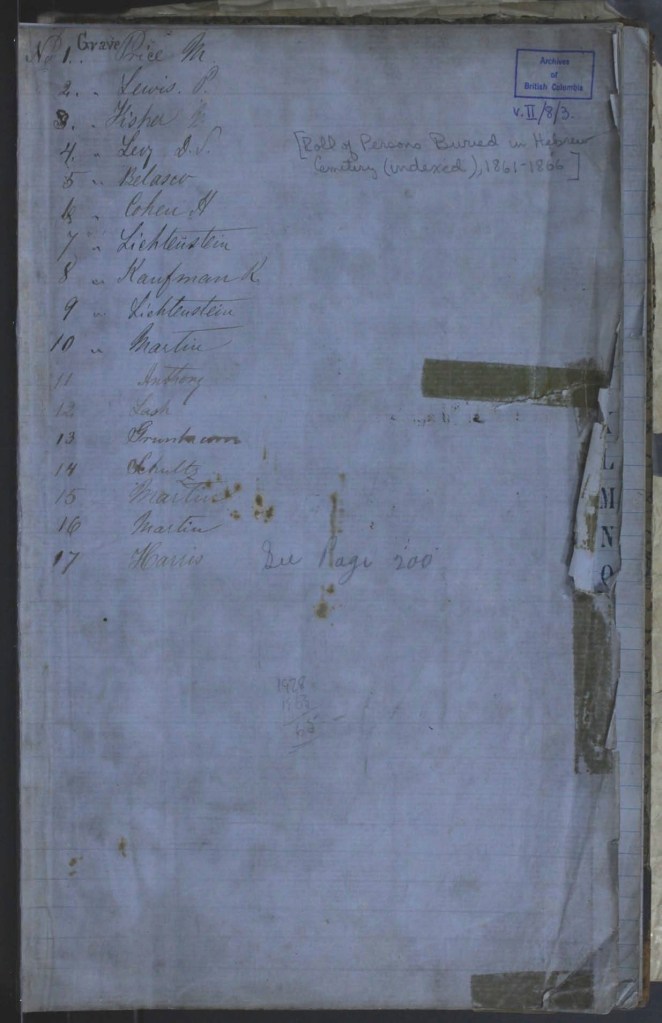 No Grave
1. Price M
2. " Lewis. P.
3. " Fisher
4. " Levy D. S.
5 " Belasco
6 " Cohen H
7 " Lichtenstein
8 " Kaufman K.
9 " Lichtenstein
10 " Martin
11 Anthony
12 Lash
13 Grunbaum
14 Schultz
15 Martin
16 Martin
17 Harris See Page 200
Archives
of
British Columbia
v. II/8/3.
[Roll of Persons Buried in Hebrew
Cemetery (indexed), 1861-1866]
L
M
N
O
1928